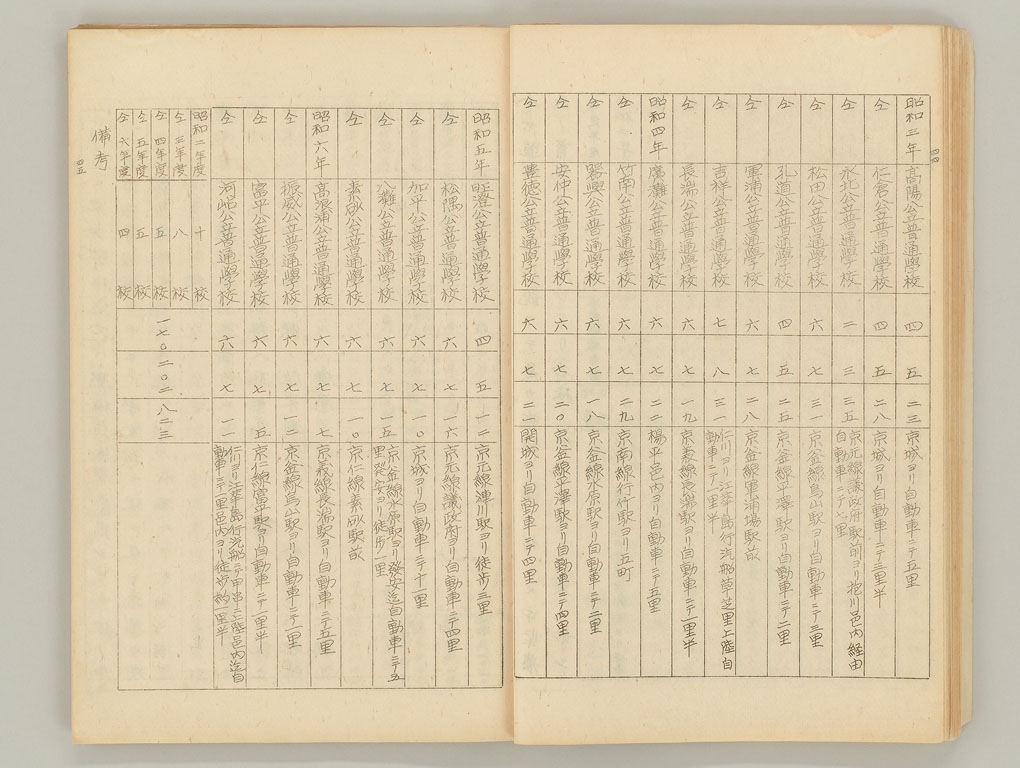 四四
昭和三年 高陽公立普通學校 四 五 二三 京城ヨリ自動車ニテ五里
仝 仁倉公立普通學校 四 五 二八 京城ヨリ自動車ニテ三里半
仝 永北公立普通學校 二 三 三五 京元線議政府駅前ヨリ抱川邑内経由自動車ニテ七里
仝 松田公立普通學校 六 七 三一 京釜線烏山駅ヨリ自動車ニテ三里
仝 孔道公立普通學校 四 五 二五 京釜線平澤駅ヨリ自動車ニテ二里
仝 軍浦公立普通學校 六 七 二八 京釜線軍浦場駅前
仝 吉祥公立普通學校 七 八 三一 仁川ヨリ江華島行汽船草芝里上陸自動車ニテ一里半
仝 長湍公立普通學校 六 七 一九 京義線長湍駅ヨリ自動車ニテ一里半
昭和四年 廣灘公立普通學校 六 七 二二 楊平邑内ヨリ自動車ニテ五里
仝 竹南公立普通學校 六 七 二九 京南線行竹駅ヨリ五町
仝 公立普通學校 六 七 一八 京釜線水原駅ヨリ自動車ニテ二里
仝 安仲公立普通學校 六 七 二〇 京釜線平澤駅ヨリ自動車ニテ四里
仝 豊徳公立普通學校 六 七 二一 開城ヨリ自動車ニテ四里
昭和五年 公立普通學校 四 五 一二 京元線漣川駅ヨリ徒歩三里
仝 松隅公立普通學校 六 七 一六 京元線議政府ヨリ自動車ニテ四里
仝 加平公立普通學校 六 七 一〇 京城ヨリ自動車ニテ十一里
仝 八灘公立普通學校 六 七 一五 京釜線水原駅ヨリ發安迄自動車ニテ五里發安ヨリ徒歩一里
仝 素砂公立普通學校 六 七 一〇 京仁線素砂駅前
昭和六年 高浪浦公立普通學校 六 七 七 京義線長湍駅ヨリ自動車ニテ五里
仝 振威公立普通學校 六 七 一二 京釜線烏山駅ヨリ自動車ニテ一里
仝 富平公立普通學校 六 七 五 京仁線富平駅ヨリ自動車ニテ一里半
仝 河岾公立普通學校 六 七 一一 仁川ヨリ江華島行汽船ニテ甲串ニ上陸邑内迄自動車ニテ一里邑内ヨリ徒歩約一里半
昭和二年度 十校
仝三年度 八校
仝四年度 五校
仝五年度 五校
仝六年度 四校
一七〇 二〇二 八二三
備考
四五